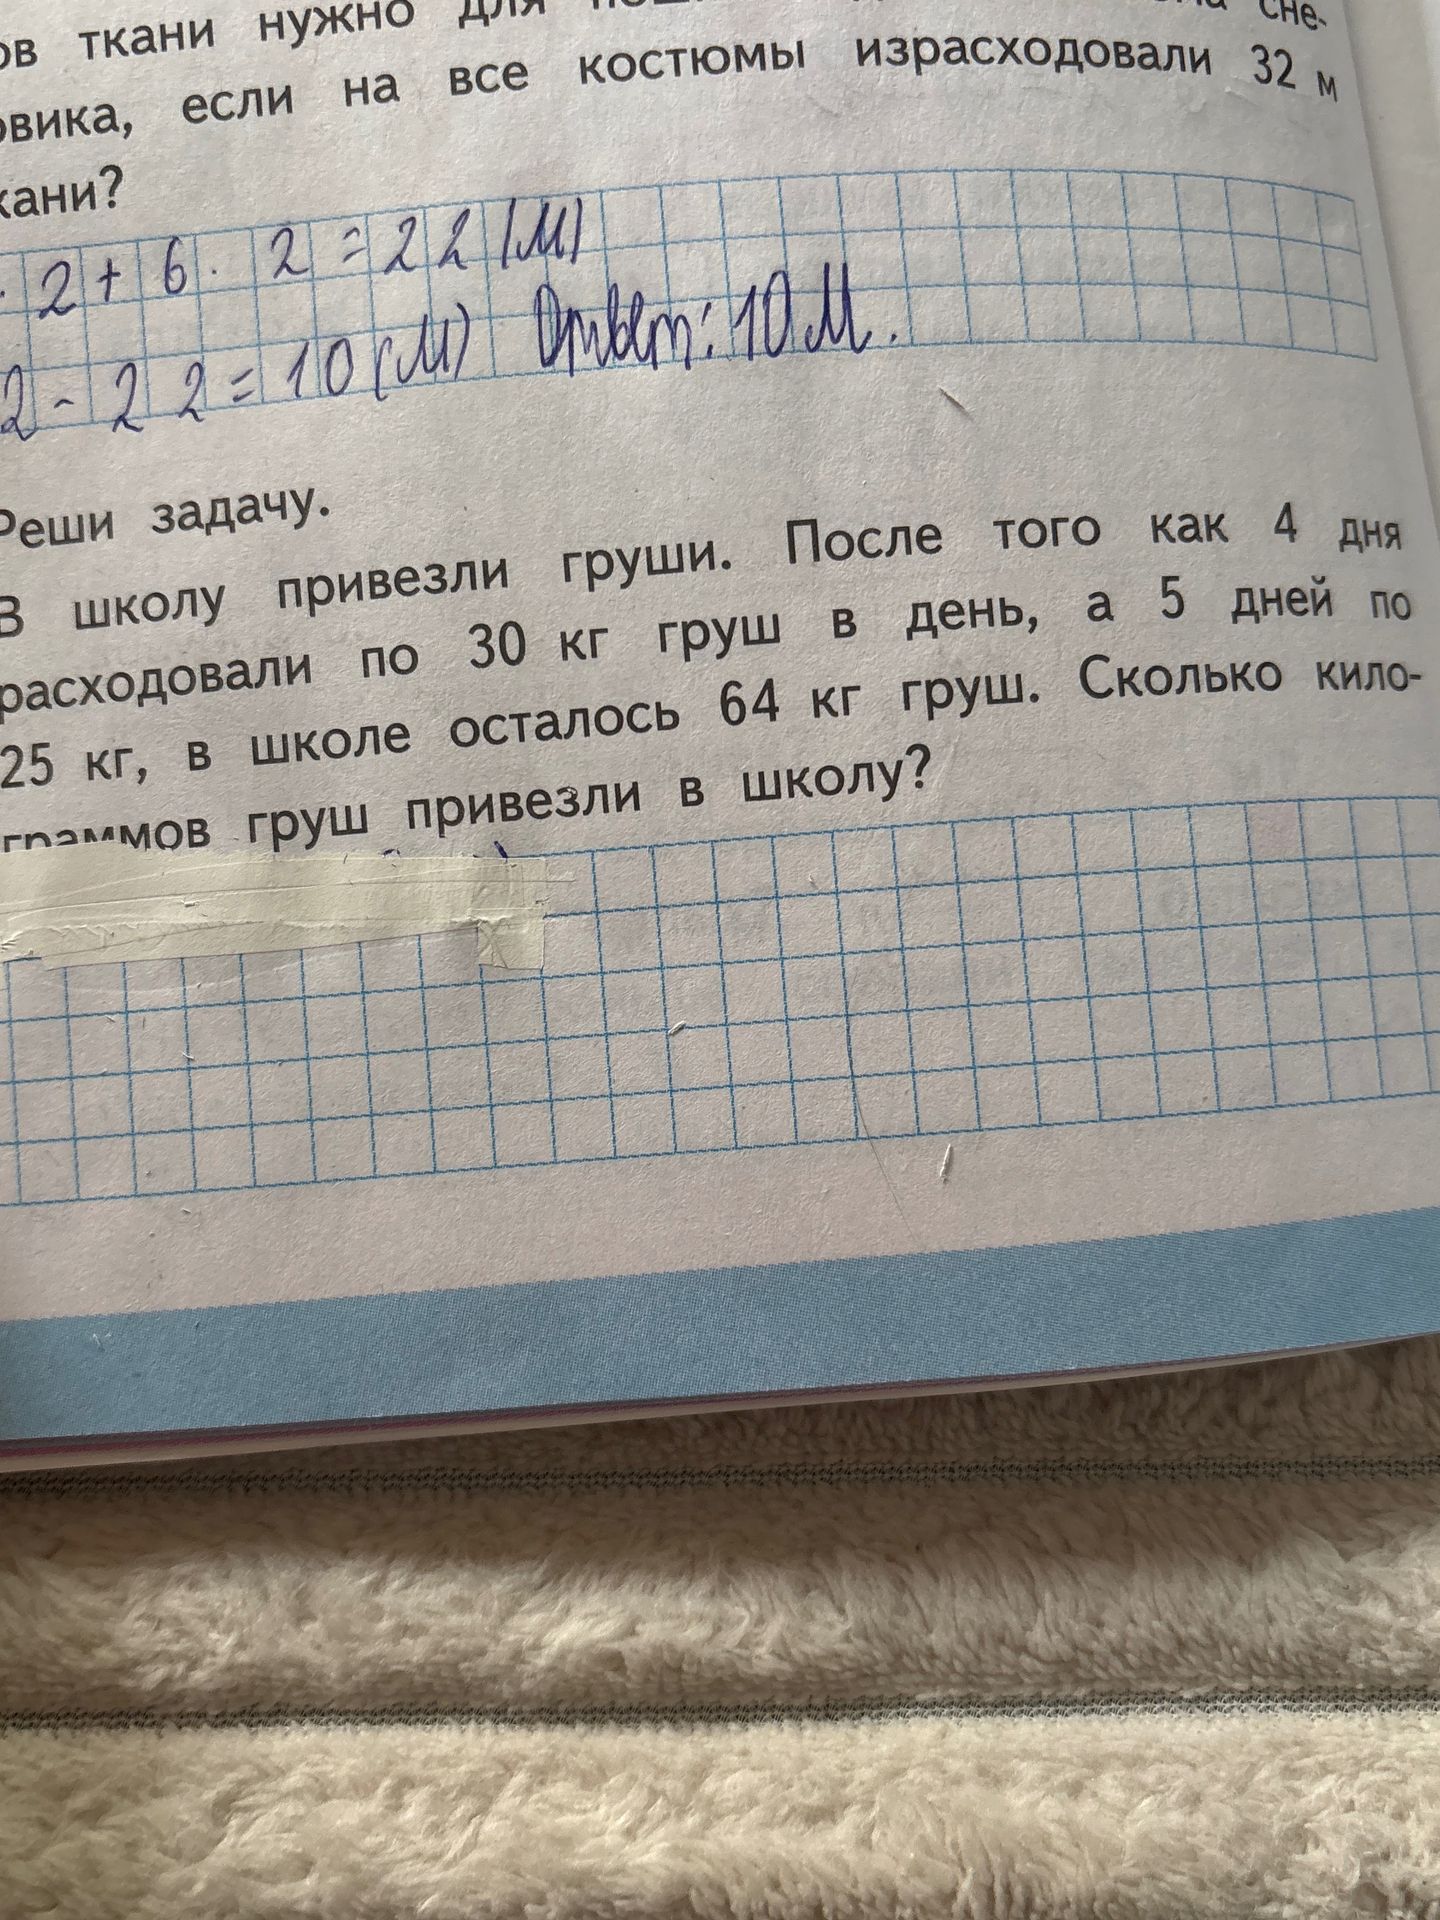 ткани нужно для сне-
если на все костюмы израсходовали 32 м
2 + 6 · 2 = 22 (м)
2 - 22 = 10 (м) Ответ: 10 м.
Реши задачу.
В школу привезли груши. После того как 4 дня
расходовали по 30 кг груш в день, а 5 дней по
25 кг, в школе осталось 64 кг груш. Сколько кило-
граммов груш привезли в школу?